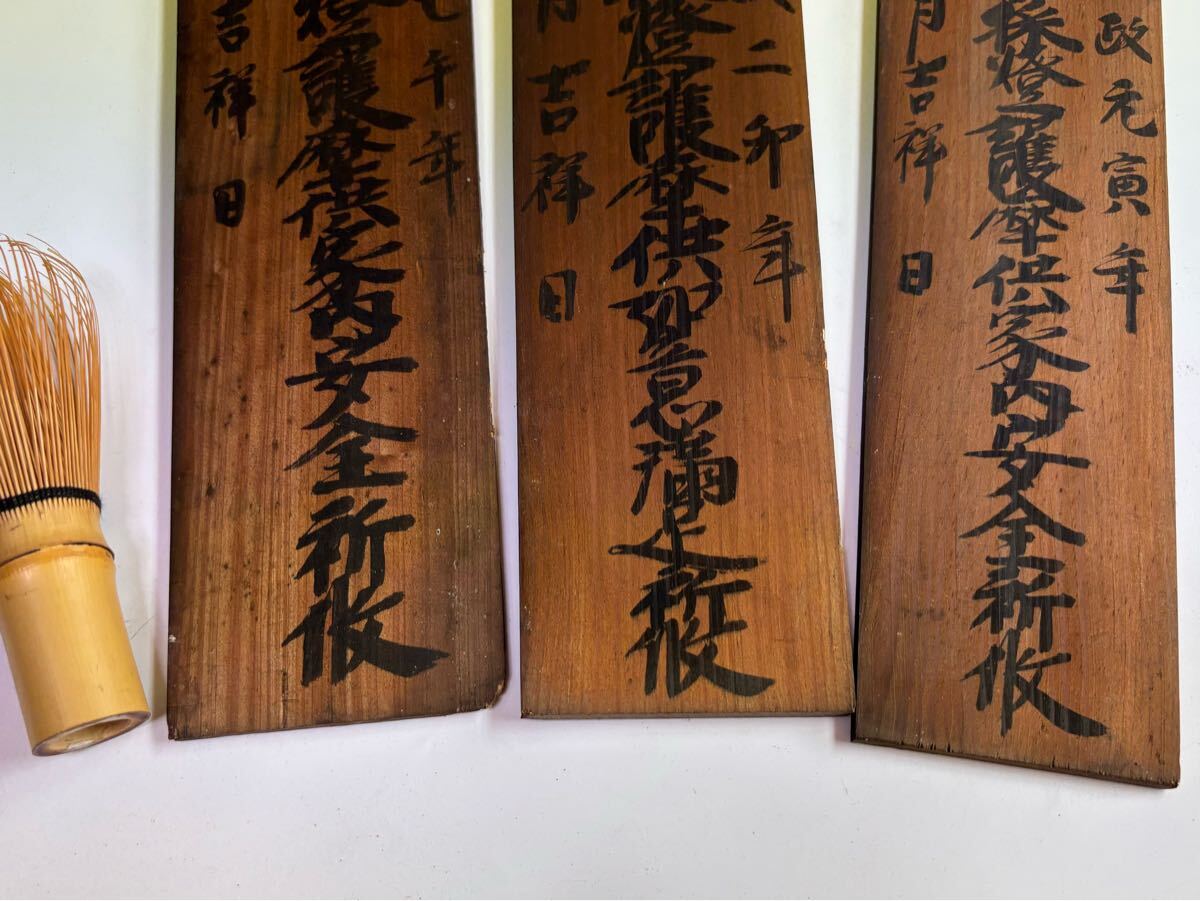 政元寅年
採燈護摩供家内安全祈攸
月吉祥日
二卯年
燈護摩供如意滿足祈攸
月吉祥日
午年
燈護摩供家内安全祈攸
吉祥日